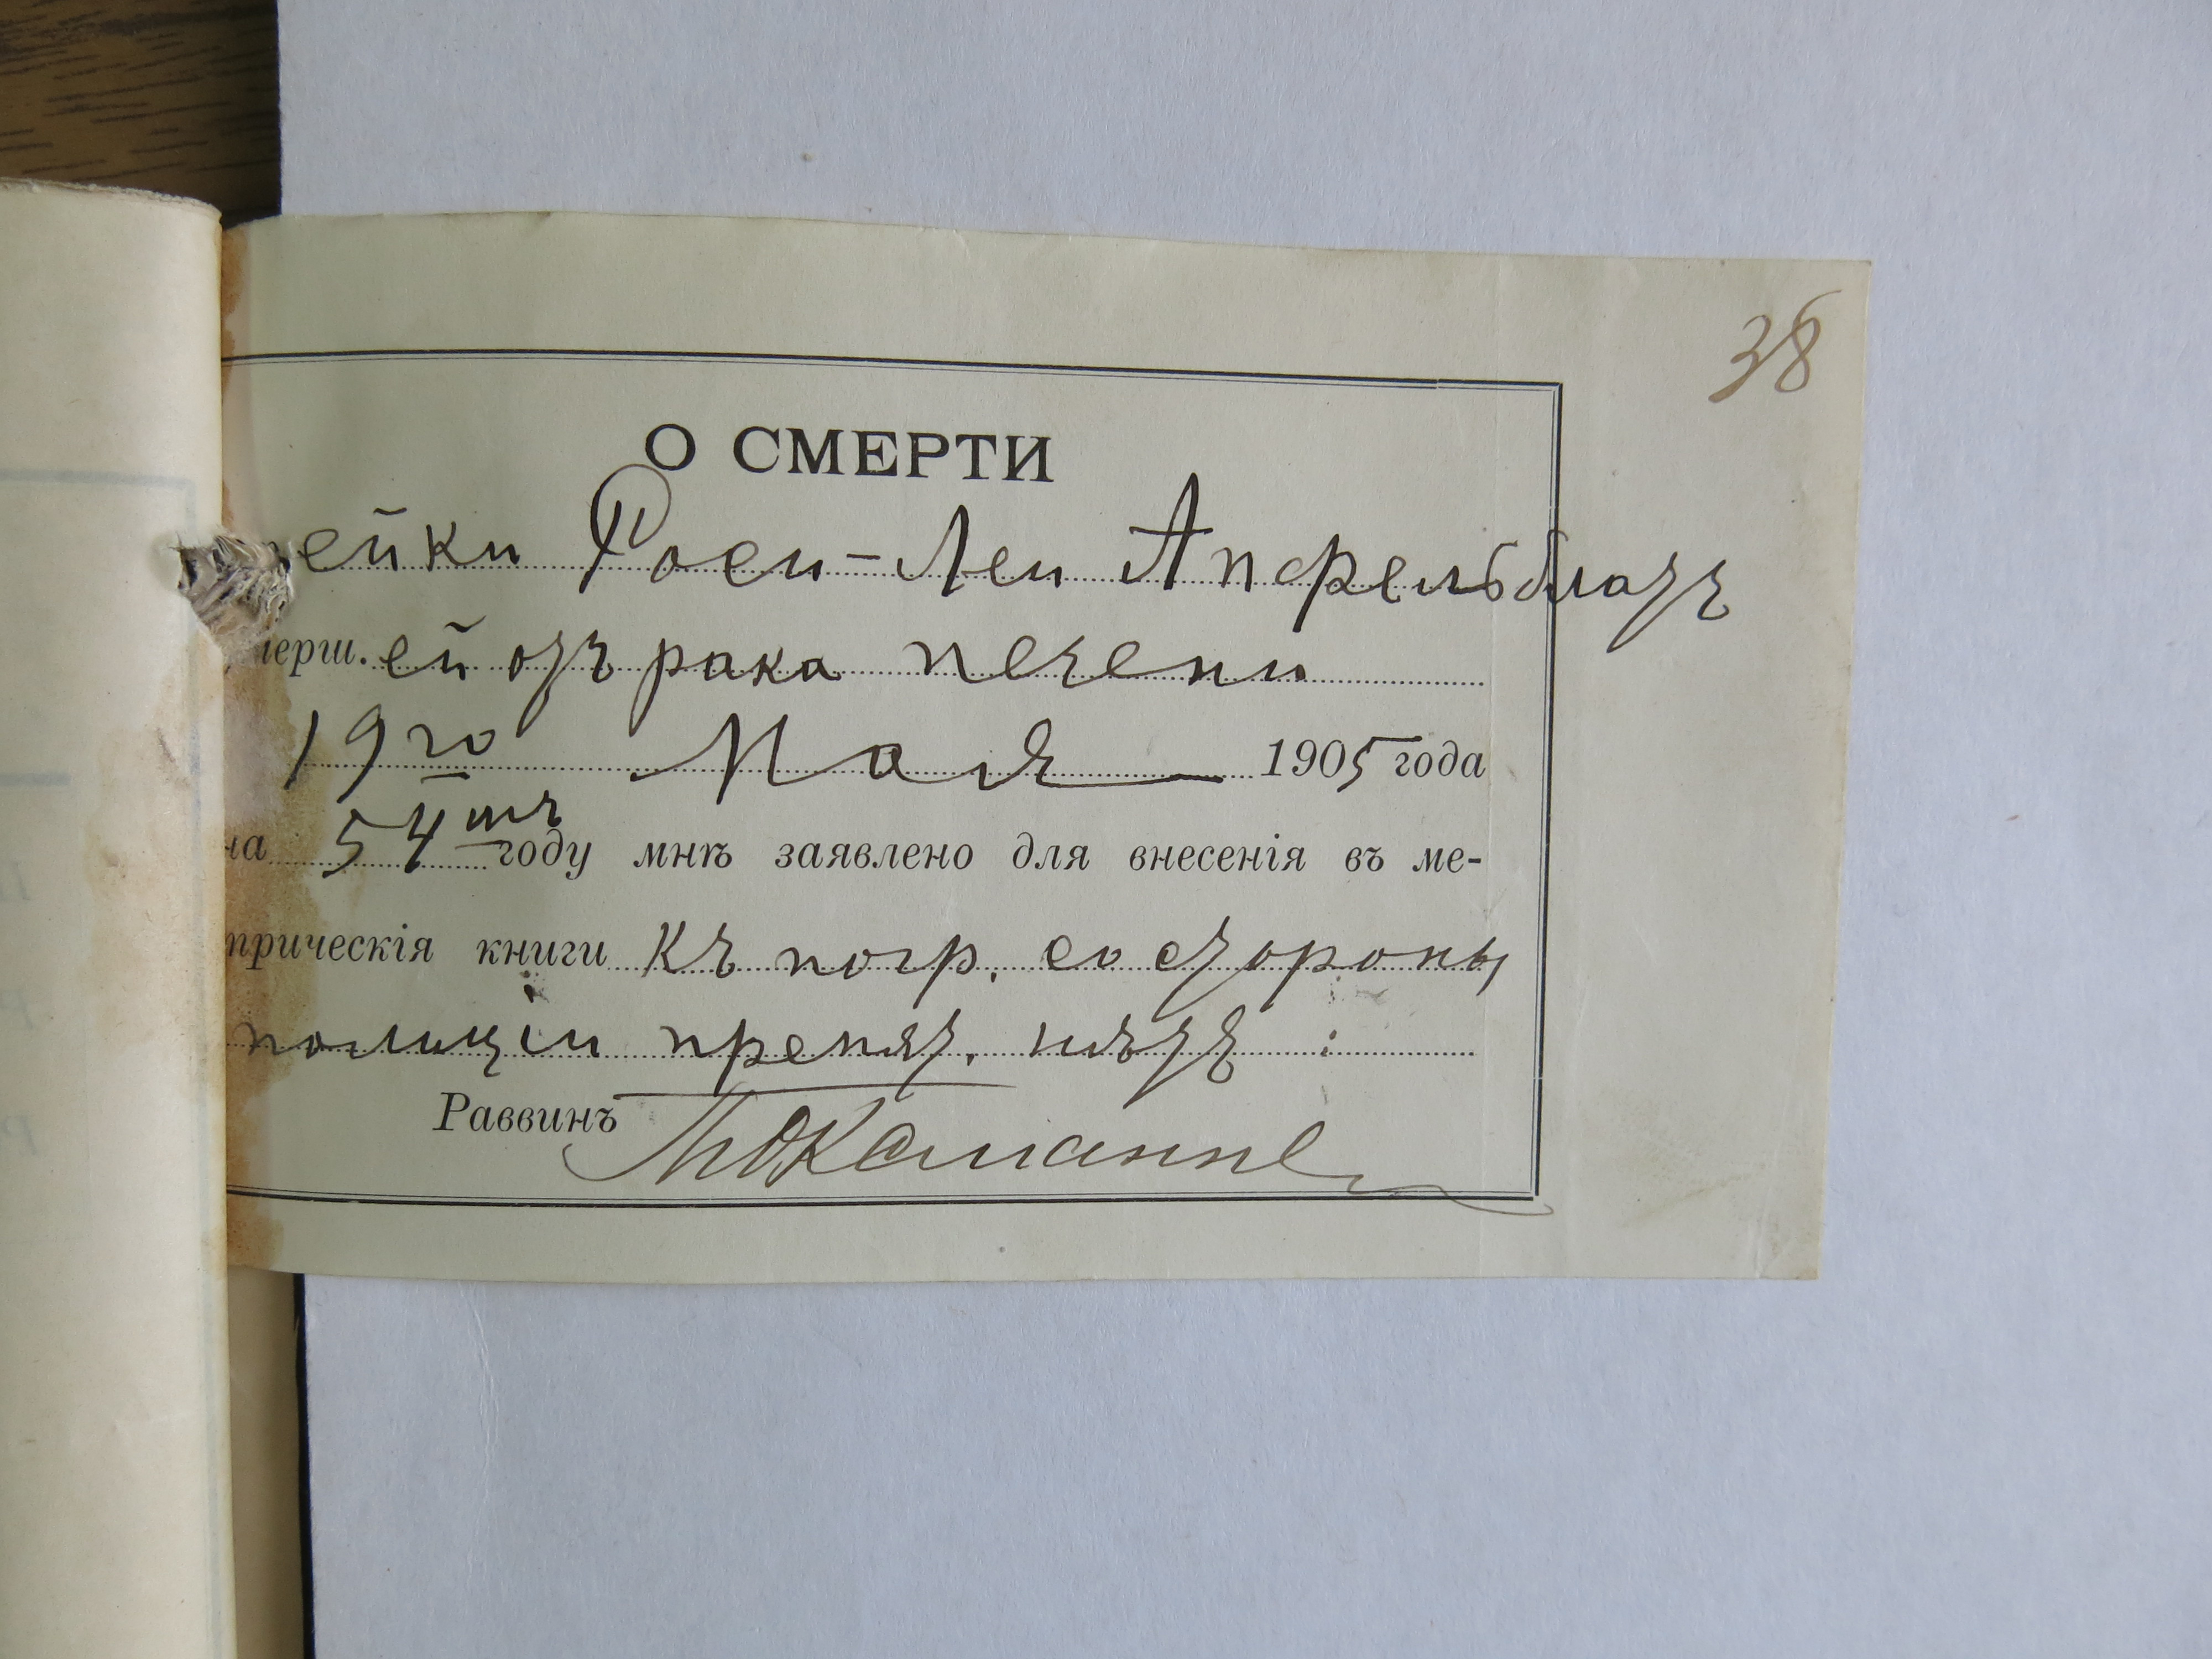 38
О СМЕРТИ
ейки Роси-Леи Апфельблатъ
мерш. ей отъ рака печени
19го Мая 1905 года
на 54мъ году мнѣ заявлено для внесенія въ ме-
трическія книги Къ погр. со стороны
полиціи препят. нѣтъ
Раввинъ